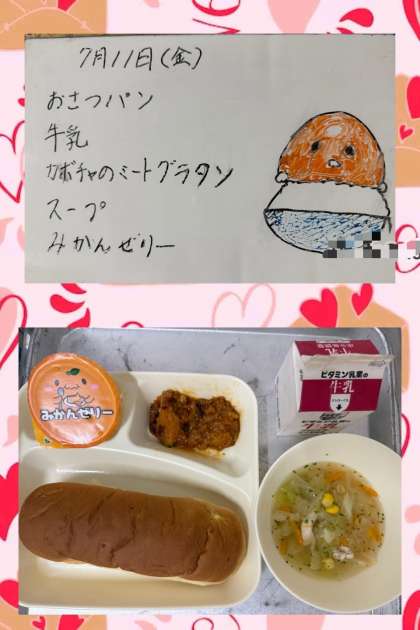 7月11日(金)
おさつパン
牛乳
カボチャのミートグラタン
スープ
みかんゼリー
みかんゼリー
ビタミン乳業の
牛乳